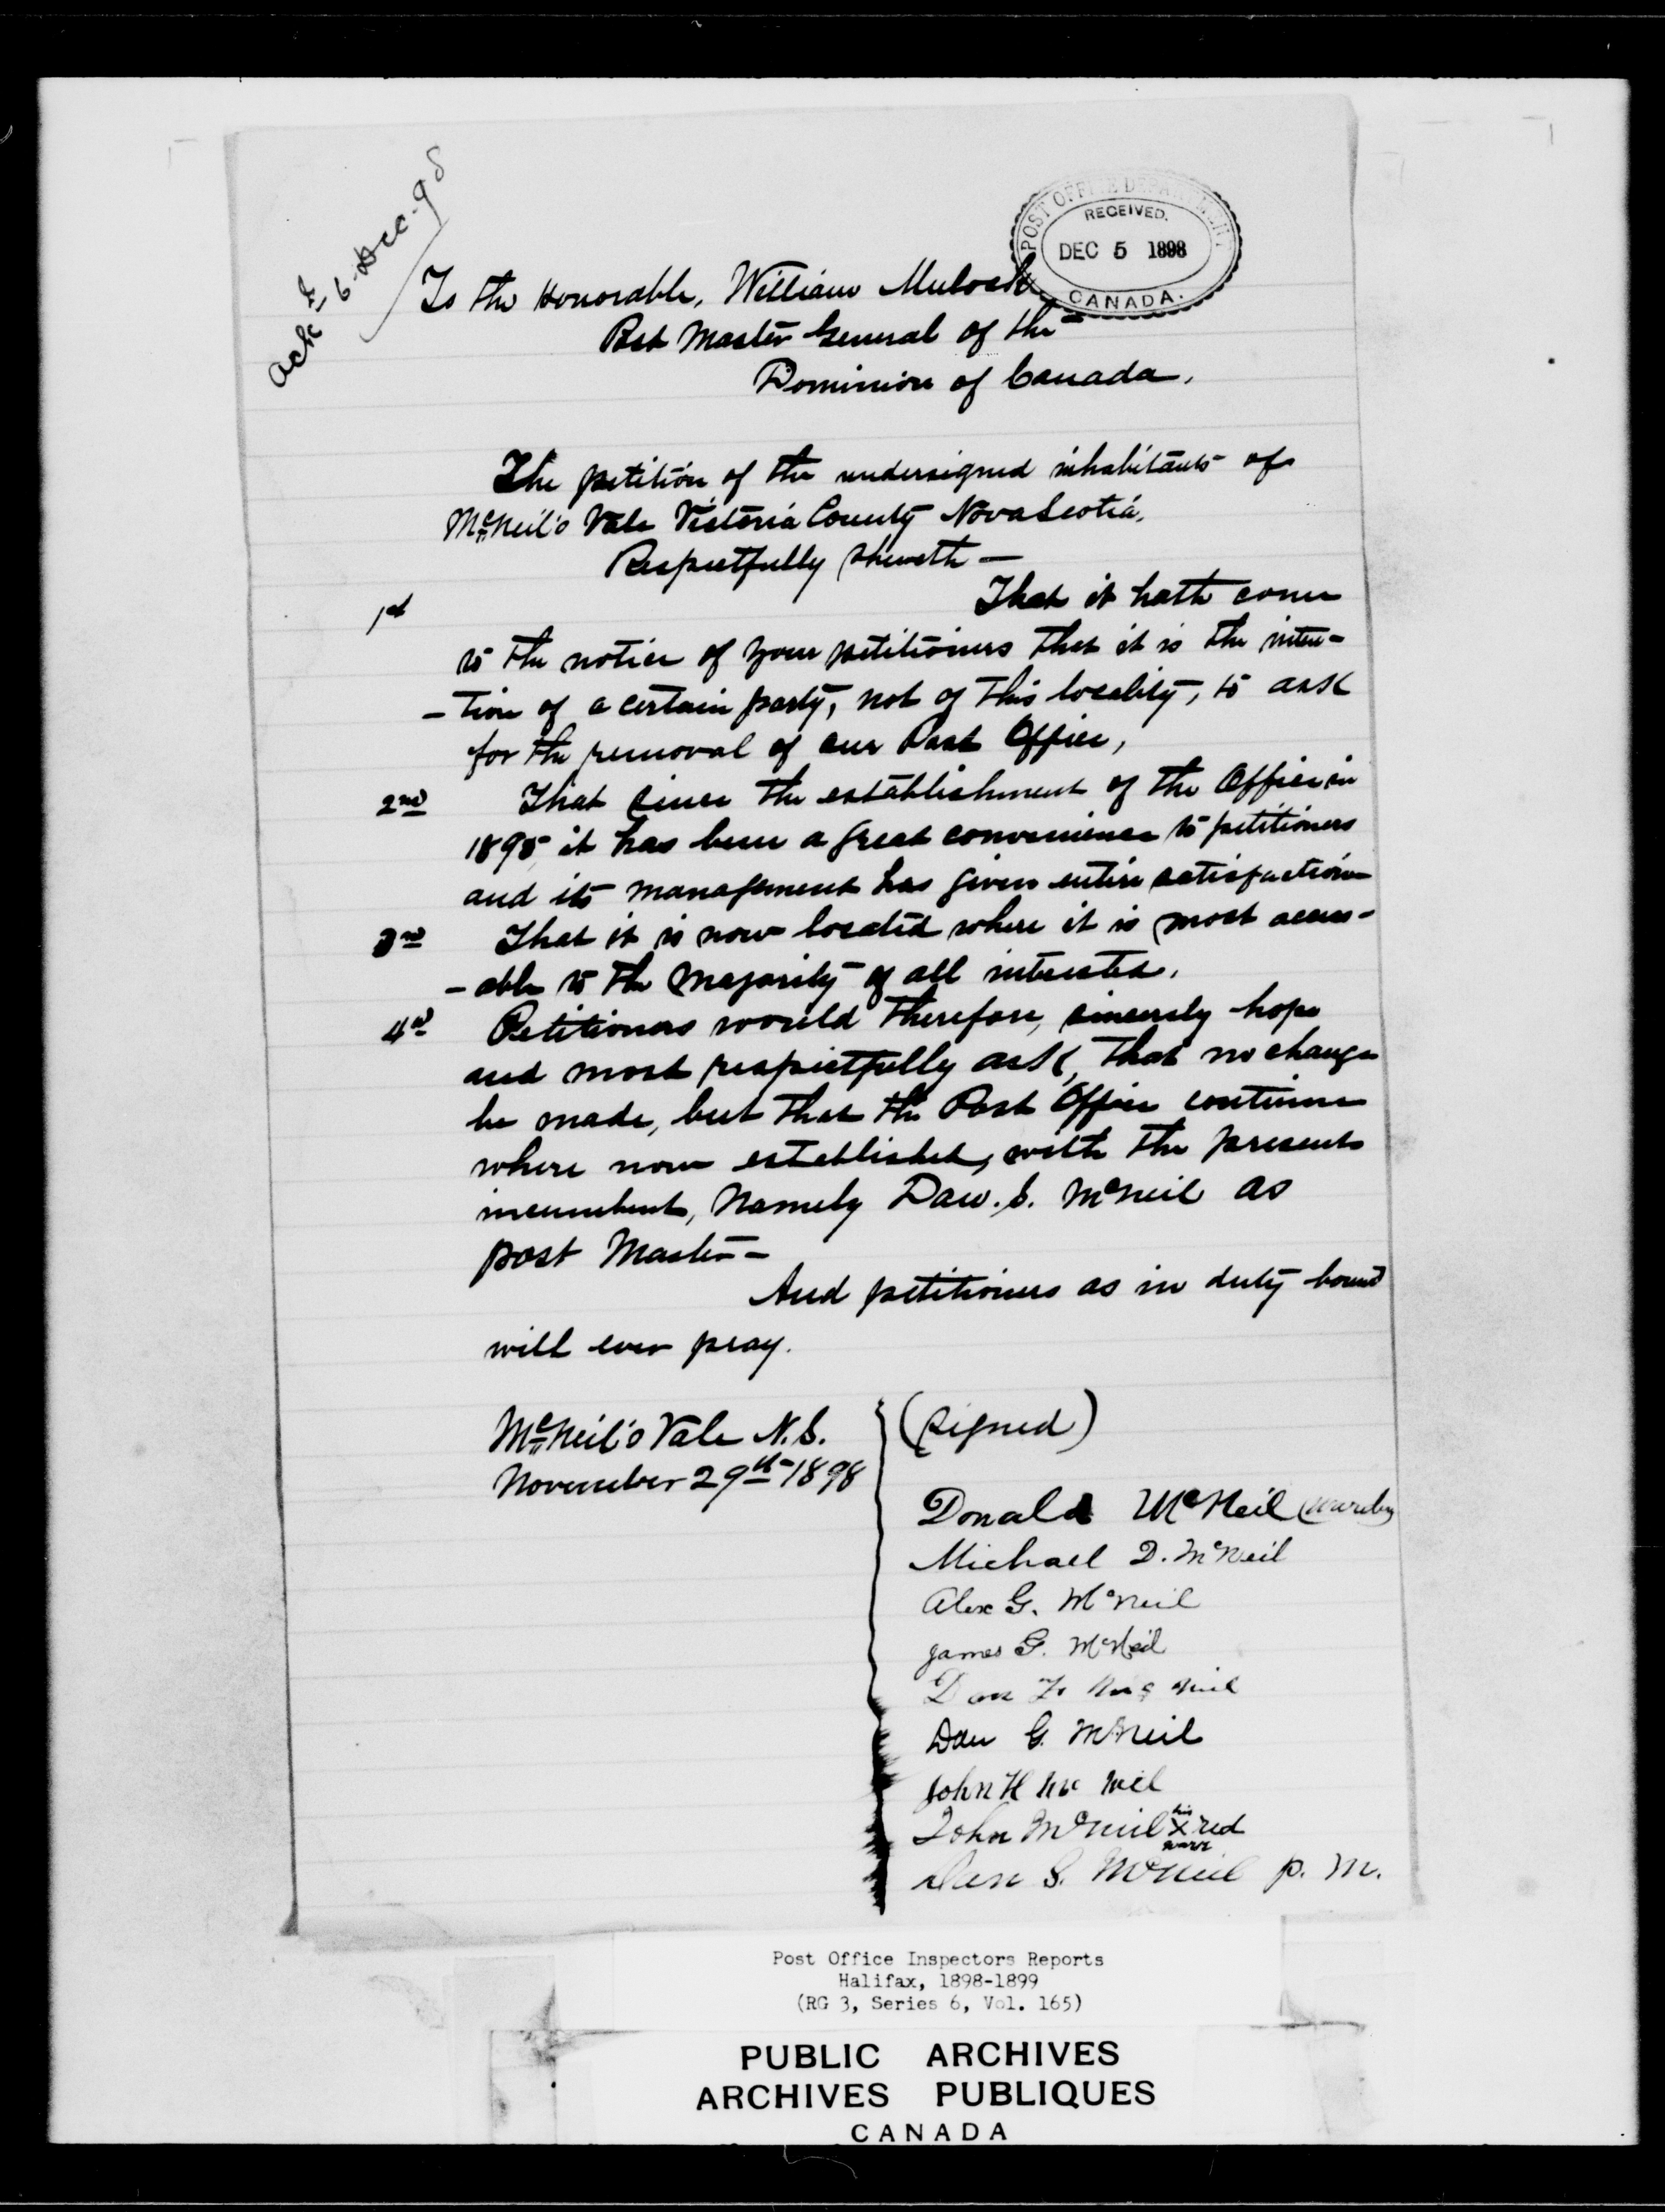 Ackd 6-Dec-98
POST OFFICE DEPARTMENT
RECEIVED.
DEC 5 1898
CANADA.
To the Honorable, William Mulock
Post Master General of the
Dominion of Canada.
The petition of the undersigned inhabitants of
McNeil's Vale Victoria County Nova Scotia,
Respectfully sheweth —
1st That it hath come
to the notice of your petitioners that it is the inten-
-tion of a certain party, not of this locality, to ask
for the removal of our Post Office,
2nd That since the establishment of the Office in
1895 it has been a great convenience to petitioners
and its management has given entire satisfaction
3rd That it is now located where it is most access-
-able to the majority of all interested.
4th Petitioners would therefore, sincerely hope
and most respectfully ask, that no change
be made, but that the Post Office continue
where now established, with the present
incumbent, Namely Dan. S. McNeil as
post Master —
And petitioners as in duty bound
will ever pray.
McNeil's Vale N.S.
November 29th 1898
(Signed)
Donald McNeil
Michael D. McNeil
Alex G. McNeil
James G. McNeil
Dan Mc Neil
Dan G. McNeil
John H Mc Neil
John McNeil his X mark red
Dan S. McNeil P. M.
Post Office Inspectors Reports
Halifax, 1898-1899
(RG 3, Series 6, Vol. 165)
PUBLIC ARCHIVES
ARCHIVES PUBLIQUES
CANADA